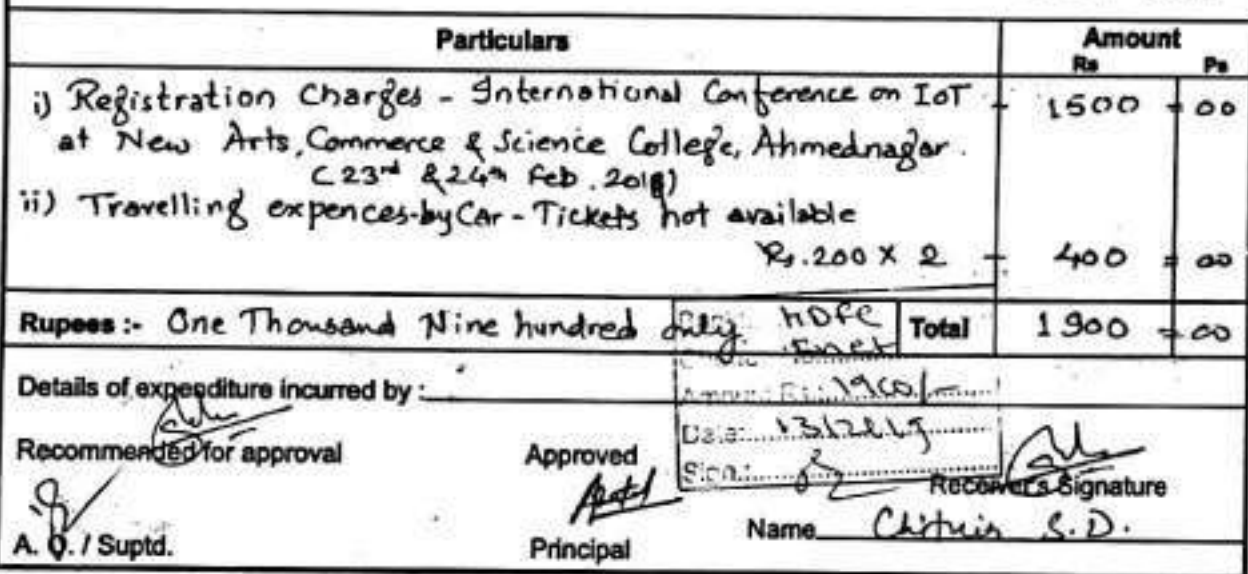 Particulars Amount
Rs Ps
i) Registration Charges - International Conference on IoT - 1500 = 00
at New Arts, Commerce & Science College, Ahmednagar.
(23rd & 24th Feb. 2018)
ii) Travelling expences-by Car - Tickets not available
Rs. 200 X 2 - 400 = 00
Rupees :- One Thousand Nine hundred only Total 1900 = 00
HDFC
Details of expenditure incurred by :
Amount Rs.: 1900/-
Date:
Recommended for approval Approved Sign.:
Receiver's Signature
Name S.D.
A. O. / Suptd. Principal